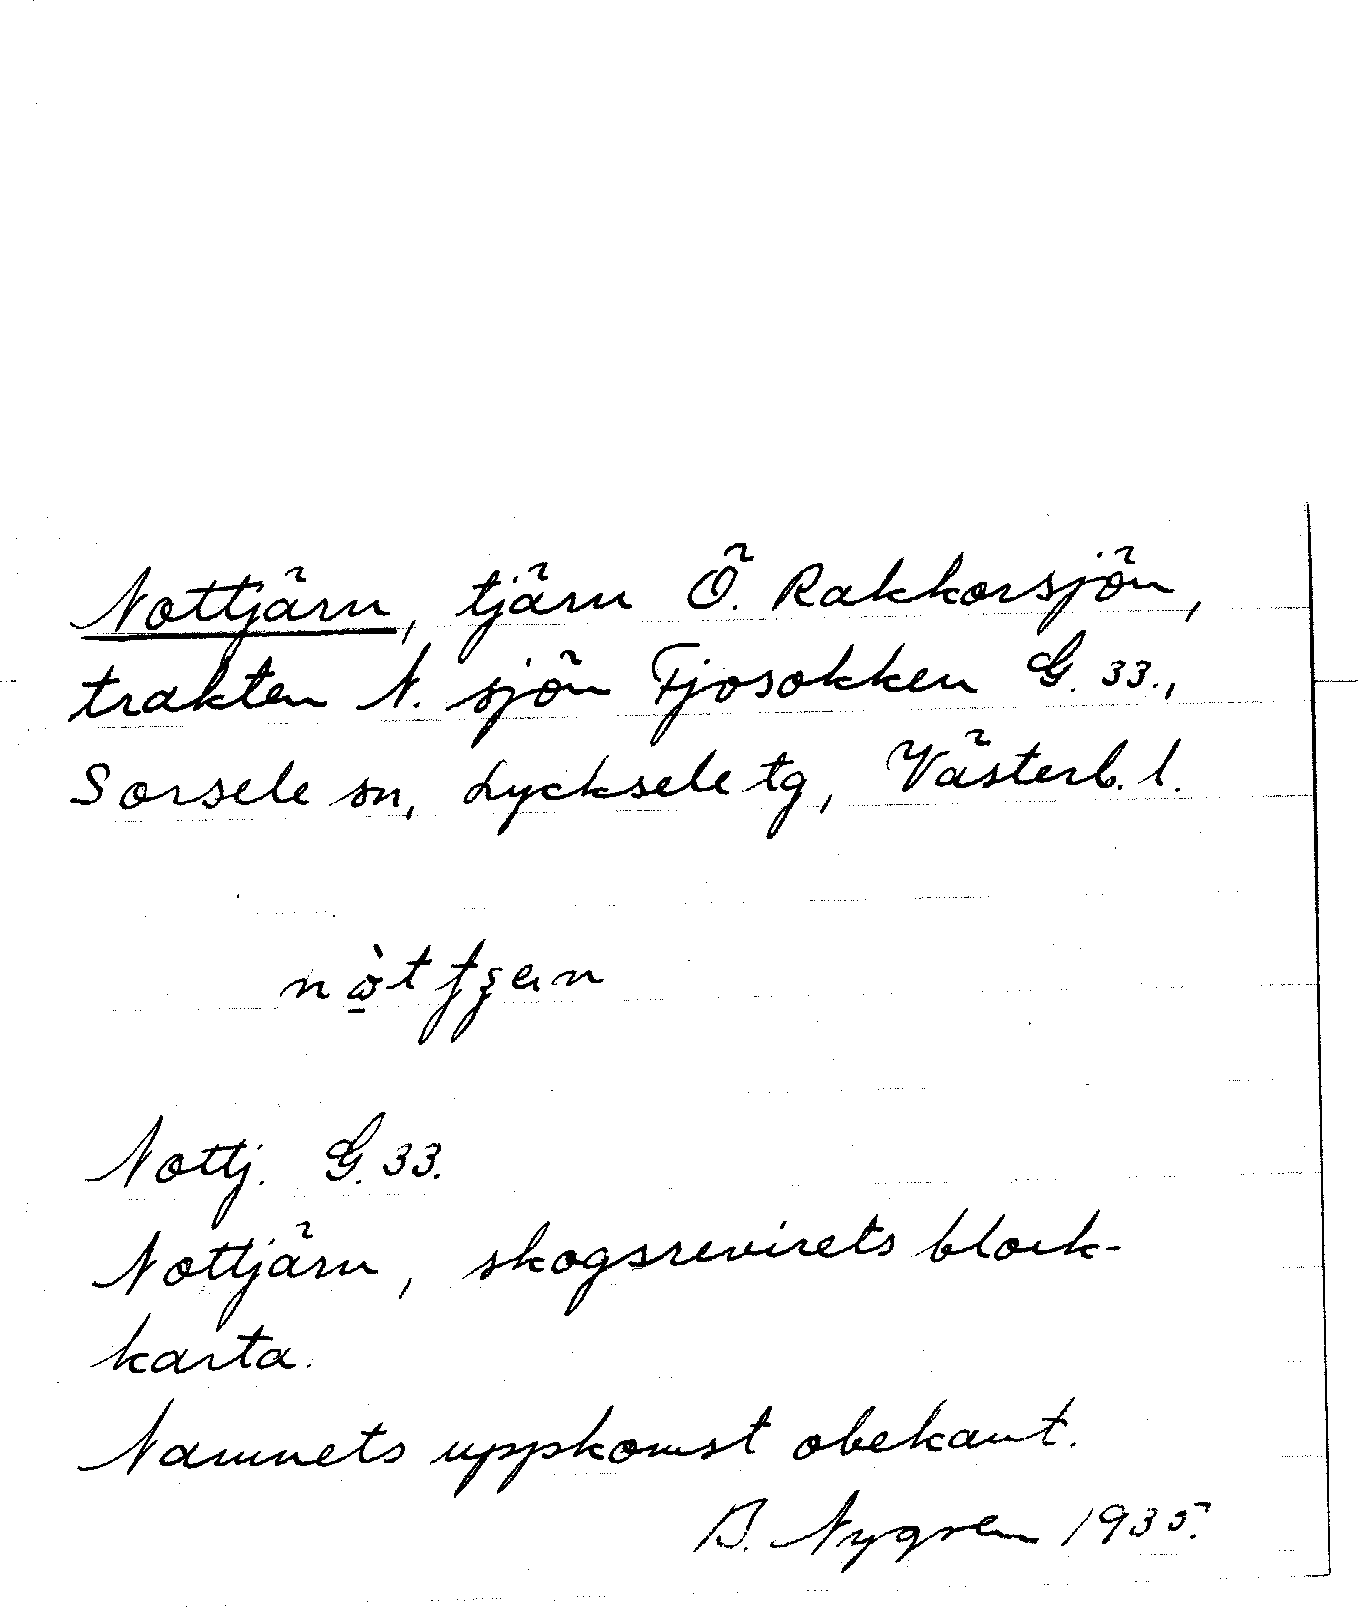 Nottjärn, tjärn Ö. Rakkorsjön,
trakten N. sjön Fjosokken G. 33.,
Sorsele sn, Lycksele tg, Västerb. l.
Nottj. G. 33.
Nottjärn, skogsrevirets block-
karta.
Namnets uppkomst obekant.
B. Nygren 1935.